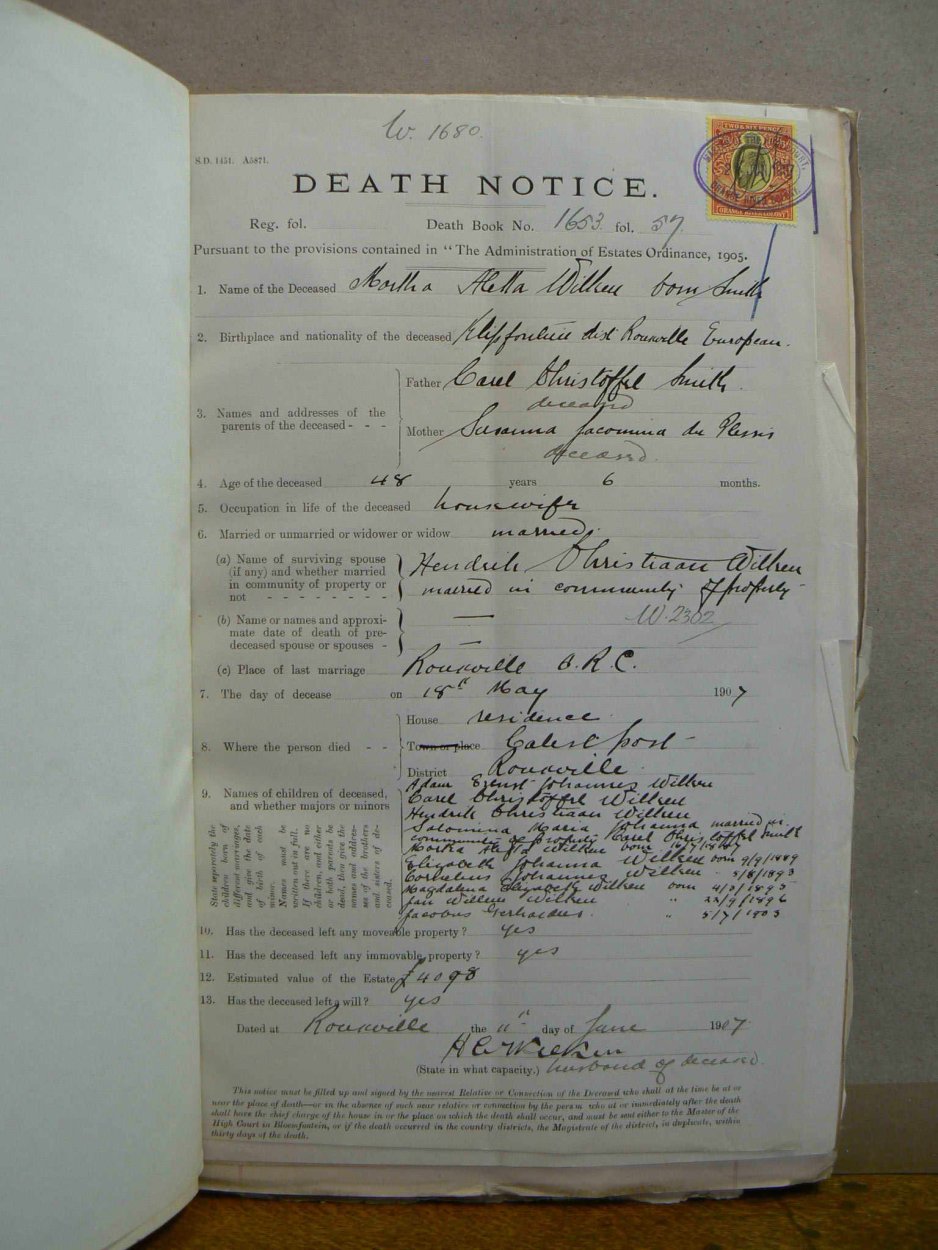 W. 1680.
S.D. 1451. A5871.
TWO & SIX PENCE
ORANGE RIVER COLONY
DEATH NOTICE.
Reg. fol. Death Book No. 1653 fol. 57
Pursuant to the provisions contained in "The Administration of Estates Ordinance, 1905.
1. Name of the Deceased Martha Aletta Wilken born Smith
2. Birthplace and nationality of the deceased Klipfontein dist Rouxville European.
3. Names and addresses of the parents of the deceased - - -
Father Carel Christoffel Smith
deceased
Mother Susanna Jacomina du Plessis
deceased.
4. Age of the deceased 48 years 6 months.
5. Occupation in life of the deceased housewife
6. Married or unmarried or widower or widow married
(a) Name of surviving spouse (if any) and whether married in community of property or not - - - - - - - -
Hendrik Christiaan Wilken
married in community of property
(b) Name or names and approximate date of death of predeceased spouse or spouses -
—
W. 2302
—
(c) Place of last marriage Rouxville O.R.C.
7. The day of decease on 18th May 1907
8. Where the person died - -
House residence
Town or place Calest poort
District Rouxville
9. Names of children of deceased, and whether majors or minors
State separately the children born of different marriages, and give the date of birth of each minor.
Names must be written out in full.
If there are no children, and either or both parents be dead, then give the names and addresses of the brothers and sisters of deceased.
Adam Ernst Johannes Wilken
Carel Christoffel Wilken
Hendrik Christiaan Wilken
Salomina Maria Johanna married in
community of property Carel Christoffel Smith
Martha Aletta Wilken born
Elizabeth Johanna Wilken born 9/9/1889
Cornelius Johannes Wilken " 5/8/1893
Magdalena Elizabeth Wilken born 4/3/1895
Jan Willem Wilken " 22/9/1896
Jacobus Gerhardus " 5/7/1903
10. Has the deceased left any moveable property? yes
11. Has the deceased left any immovable property? yes
12. Estimated value of the Estate £4098
13. Has the deceased left a will? yes
Dated at Rouxville the 11th day of June 1907
H C Wilken
(State in what capacity.) husband of deceased.
This notice must be filled up and signed by the nearest Relative or Connection of the Deceased who shall at the time be at or
near the place of death—or in the absence of such near relative or connection by the person who at or immediately after the death
shall have the chief charge of the house in or the place on which the death shall occur, and must be sent either to the Master of the
High Court in Bloemfontein, or if the death occurred in the country districts, the Magistrate of the district, in duplicate, within
thirty days of the death.